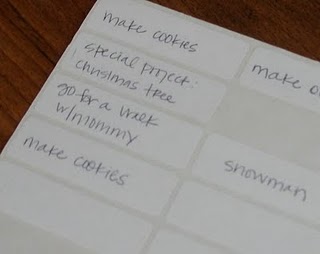 make cookies
special project:
christmas tree
go for a walk
w/mommy
make cookies
make
snowman